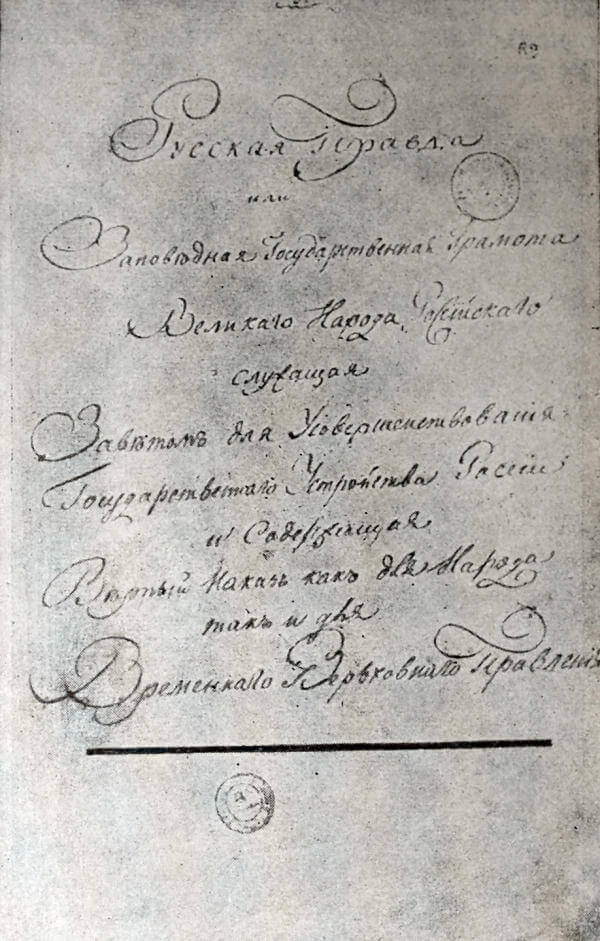 89
Русская Правда
или
Заповѣдная Государственная Грамота
Великаго Народа Россійскаго
служащая
Завѣтомъ для Усовершенствованія
Государственнаго Устройства Россіи
и Содержащая
Вѣрный Наказъ какъ для Народа
такъ и для
Временнаго Верьховнаго Правленія